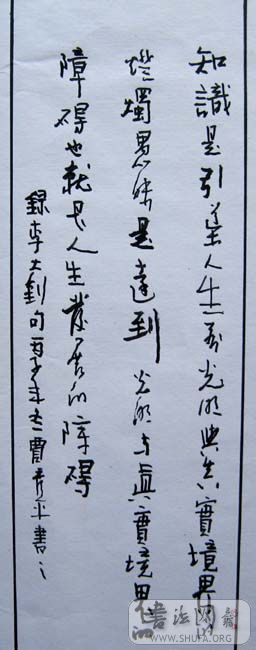 知識是引導人生到光明與真實境界的
燈燭愚昧是達到光明与眞實境界
障碍也就是人生發展的障碍
錄李大釗句 書
WWW.SHUFA.ORG